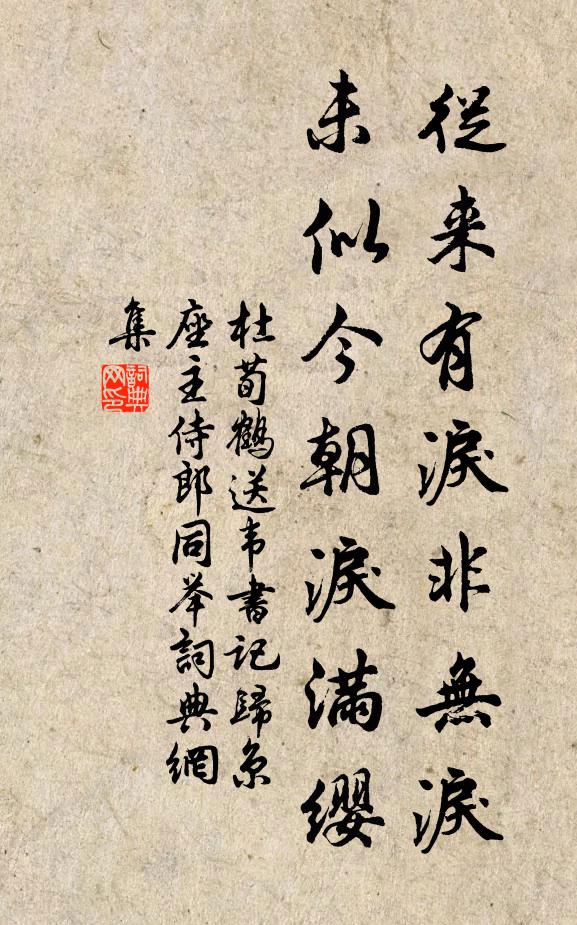 從来有淚非無淚
未似今朝淚滿纓
杜荀鶴送韦書记歸京
座主侍郎同举詞典網
集
詞典
网印